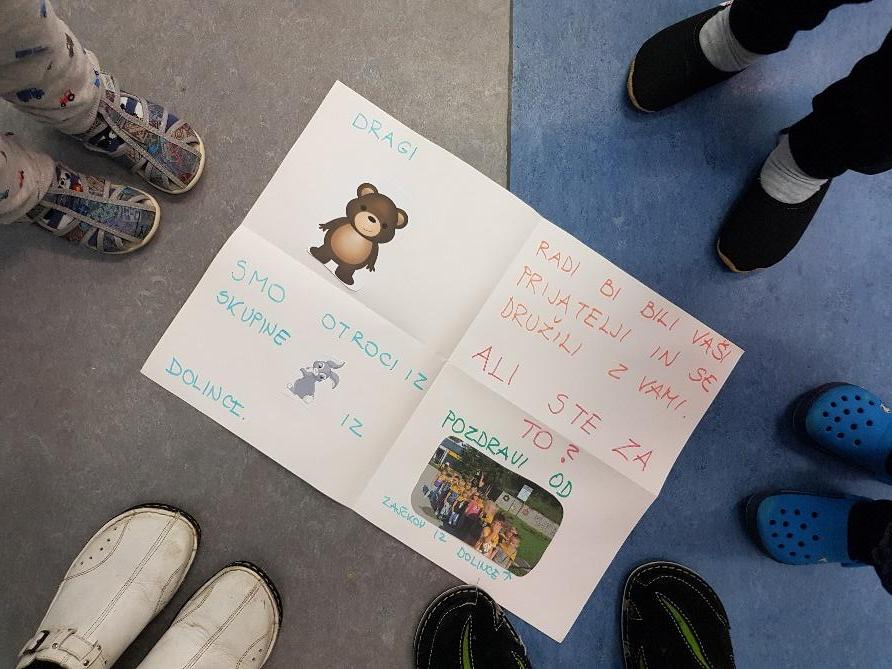 DRAGI
SMO OTROCI IZ
SKUPINE IZ
DOLINCE.
RADI BI BILI VAŠI
PRIJATELJI IN SE
DRUŽILI Z VAMI.
ALI STE ZA
TO?
POZDRAVI OD
ZAJČKOV IZ DOLINCE